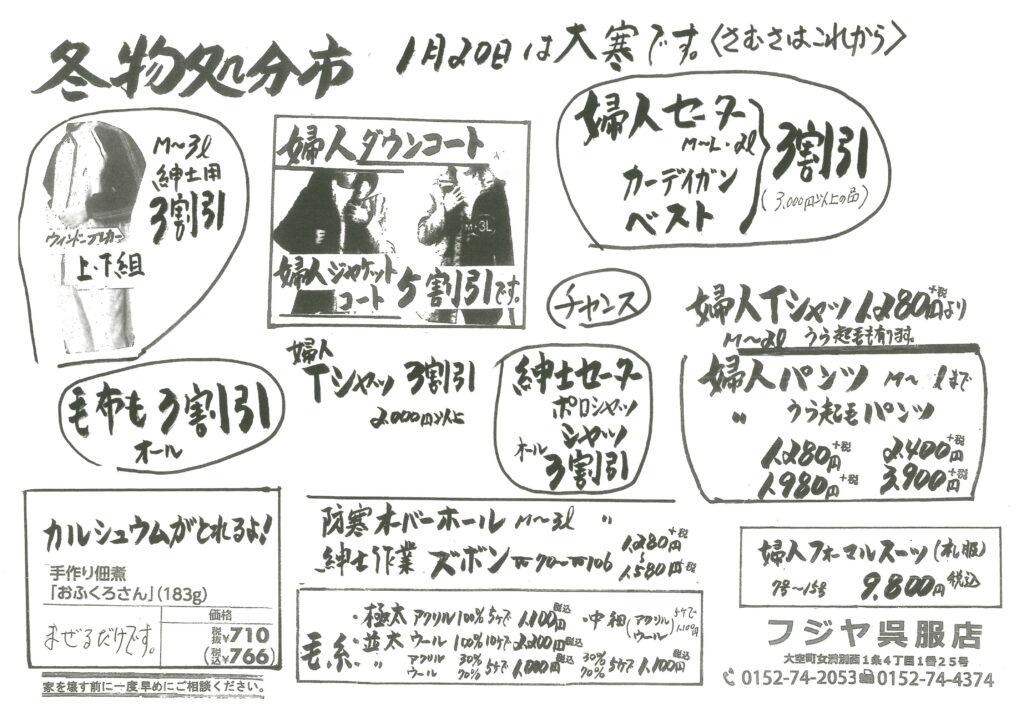 冬物処分市
1月20日は大寒です。〈さむさはこれから〉
M〜3l
紳士用
3割引
ウィンドーブレカー
上・下組
婦人ダウンコート
M-3L
婦人ジャケット
コート
5割引です。
婦人セーター
M〜L・2l
カーディガン
ベスト
3割引
(3,000円以上の品)
チャンス
婦人Tシャツ 1,280円+税より
M〜2l うら起毛も有ります。
毛布も3割引
オール
婦人
Tシャツ 3割引
2,000円以上
紳士セーター
ポロシャツ
シャツ
オール
3割引
婦人パンツ M〜lまで
〃 うら起毛パンツ
1,280円+税 2,400円+税
1,980円+税 3,900円+税
カルシュウムがとれるよ!
手作り佃煮
「おふくろさん」(183g)
価格
まぜるだけです。
税抜¥710
(税込¥766)
家を壊す前に一度早めにご相談ください。
防寒オーバーホール M〜3l 〃
紳士作業ズボン W70〜W106
1,280円+税
〜
1,580円+税
毛糸
・極太 アクリル100% 5ケで 1,100円税込
・中細(アクリル ウール) 5ケで 1,100円
並太 ウール 100% 10ケで 2,200円税込
〃 アクリル 30% ウール 70% 5ケで 1,000円税込
30% 70% 5ケで 1,100円税込
婦人フォーマルスーツ(礼服)
7号〜15号 9,800円税込
フジヤ呉服店
大空町女満別西1条4丁目1番25号
0152-74-2053 0152-74-4374